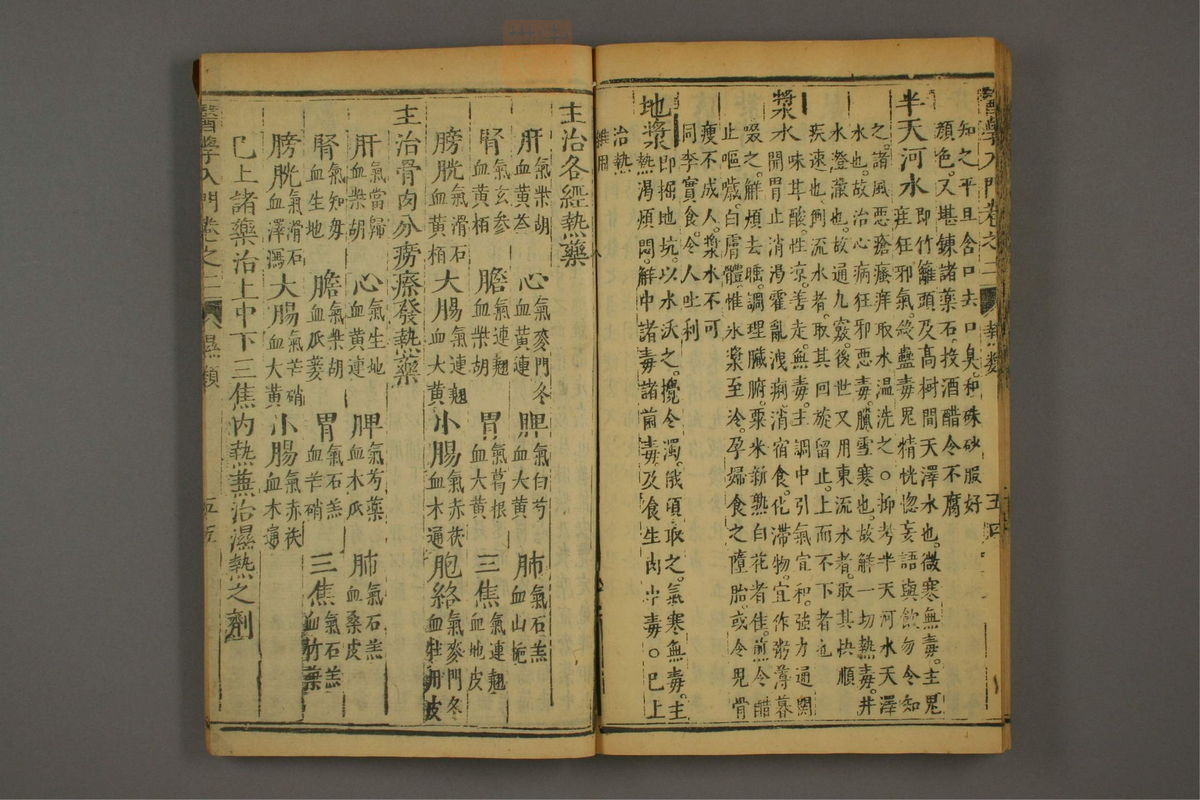 醫學入門卷之二 熱類 五四
知之平旦含口去口臭和硃砂服好
顏色又堪鍊諸藥石投酒醋令不腐
半天河水即竹籬頭及高樹間天澤水也微寒無毒主鬼
疰狂邪氣殺蠱毒鬼精恍惚妄語與飲勿令知
之諸風惡瘡瘙痒取水温洗之○抑考半天河水天澤
水也故治心病狂邪惡毒臘雪寒也故解一切熱毒井
水澄澈也故通九竅後世又用東流水者取其快順
疾速也倒流水者取其回旋留止上而不下者也
漿水味甘酸性涼善走無毒主調中引氣宜和強力通關
開胃止消渴霍亂洩痢消宿食化滯物宜作粥薄暮
啜之解煩去睡調理臟腑粟米新熟白花者佳煎令醋
止嘔噦白膚體惟氷漿至冷孕婦食之墮胎或令兒骨
瘦不成人漿水不可
同李實食令人吐利
地漿即掘地坑以水沃之攪令濁俄頃取之氣寒無毒主
熱渴煩悶解中諸毒諸菌毒及食生肉中毒○已上
治熱
雜用
主治各經熱藥
肝氣柴胡血黃芩 心氣麥門冬血黃連 脾氣白芍血大黃 肺氣石羔血山梔
腎氣玄參血黃栢 膽氣連翹血柴胡 胃氣葛根血大黃 三焦氣連翹血地皮
膀胱氣滑石血黃栢 大腸氣連翹血大黃 小腸氣赤茯血木通 胞絡氣麥門冬血牡丹皮
主治骨肉分癆瘵發熱藥
肝氣當歸血柴胡 心氣生地血黃連 脾氣芍藥血木瓜 肺氣石羔血桑皮
腎氣知母血生地 膽氣柴胡血瓜蔞 胃氣石羔血芒硝 三焦氣石羔血竹葉
膀胱氣滑石血澤瀉 大腸氣芒硝血大黃 小腸氣赤茯血木通
已上諸藥治上中下三焦內熱兼治濕熱之劑
醫學入門卷之二 濕類 五五